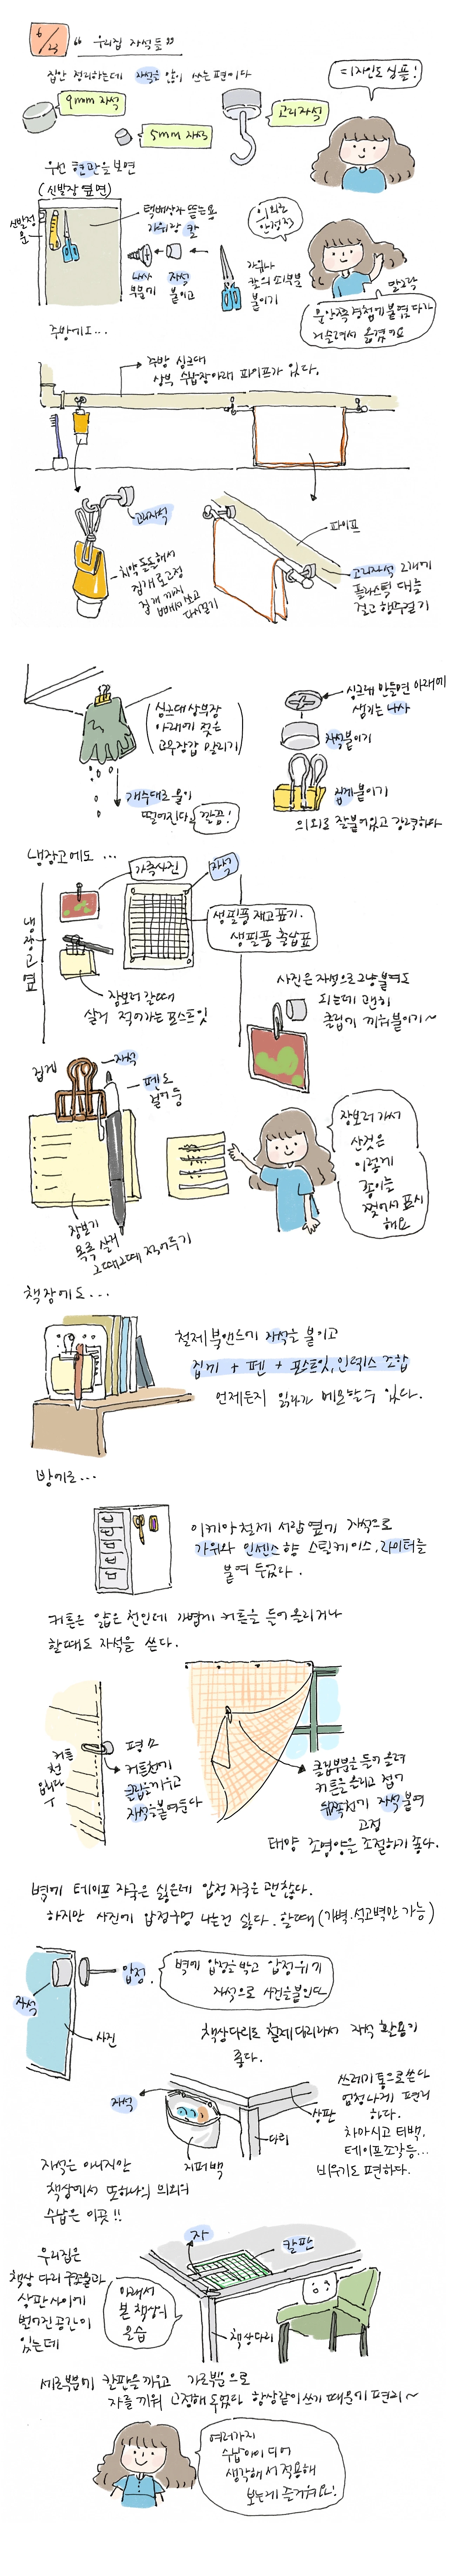 6/23 "우리집 자석들"
집안 정리하는데 자석을 많이 쓰는 편이다
디자인도 심플!
9mm 자석
5mm 자석
고리자석
우선 현관을 보면
(신발장 옆면)
신발장
문
택배상자 뜯는용
가위랑 칼
나사
부분에
자석
붙이고
가위나
칼의 쇠부분
붙이기
의외로
안정적
말그락
문안쪽 경첩에 붙였다가
거슬려서 옮겼어요
주방에도...
주방 싱크대
상부 수납장아래 파이프가 있다.
고리자석
치약 돌돌해서
집게로 고정
집게 까지
빼서 쓰고
다시걸기
파이프
고리자석 2개에
플라스틱 대를
걸고 행주걸기
싱크대상부장
아래에 젖은
고무장갑 말리기
개수대로 물이
떨어진다. 깔끔!
싱크대 만들면 아래에
생기는 나사
자석붙이기
집게 붙이기
의외로 잘붙어있고 강력하다
냉장고에도 ...
냉장고 옆
가족사진
자석
생필품 재고표기.
생필품 출납표
장보러 갈때
살거 적어가는 포스트잇
사진은 자석으로 그냥 붙여도
되는데 괜히
클립에 끼워붙이기~
집게
자석
펜도
걸어둠
장보기
목록 살거
그때그때 적어두기
장보러 가서
산것은
이렇게
종이를
찢어서 표시
해요
책장에도...
철제 북앤드에 자석을 붙이고
집게 + 펜 + 포스트잇, 인덱스 조합
언제든지 읽다가 메모할수 있다.
방에도...
이케아 철제 서랍 옆에 자석으로
가위와 인센스 향 스틸케이스, 라이터를
붙여 두었다.
커튼은 얇은 천인데 가볍게 커튼을 들어올리거나
할때도 자석을 쓴다.
커튼
천
평소
커튼천에
클립을 끼우고
자석을 붙여둔다
클립부분을 들어 올려
커튼을 올리고 접어
뒤쪽천에 자석 붙여
고정
태양 조명양을 조절하기 좋다.
벽에 테이프 자국은 싫은데 압정 자국은 괜찮다.
하지만 사진에 압정구멍 나는건 싫다. 할때 (가벽.석고벽만 가능)
자석
압정
사진
벽에 압정을 박고 압정위에
자석으로 사진을 붙인다
책상다리도 철제 다리라서 자석 활용이
좋다.
자석
지퍼백
상판
다리
쓰레기통으로 쓴다
엄청나게 편리
하다.
차마시고 티백,
테이프조각 등...
비우기도 편하다.
자석은 아니지만
책상에서 또하나의 의외의
수납은 이곳!!
자
칼판
우리집은
책상 다리 구조물과
상판사이에
벌어진공간이
있는데
아래서
본 책상의
모습
책상다리
세로부분에 칼판을 끼우고 가로부분으로
자를 끼워 고정해 두었다 항상같이 쓰기 때문에 편리~
여러가지
수납아이디어
생각해서 적용해
보는게 즐거워요!